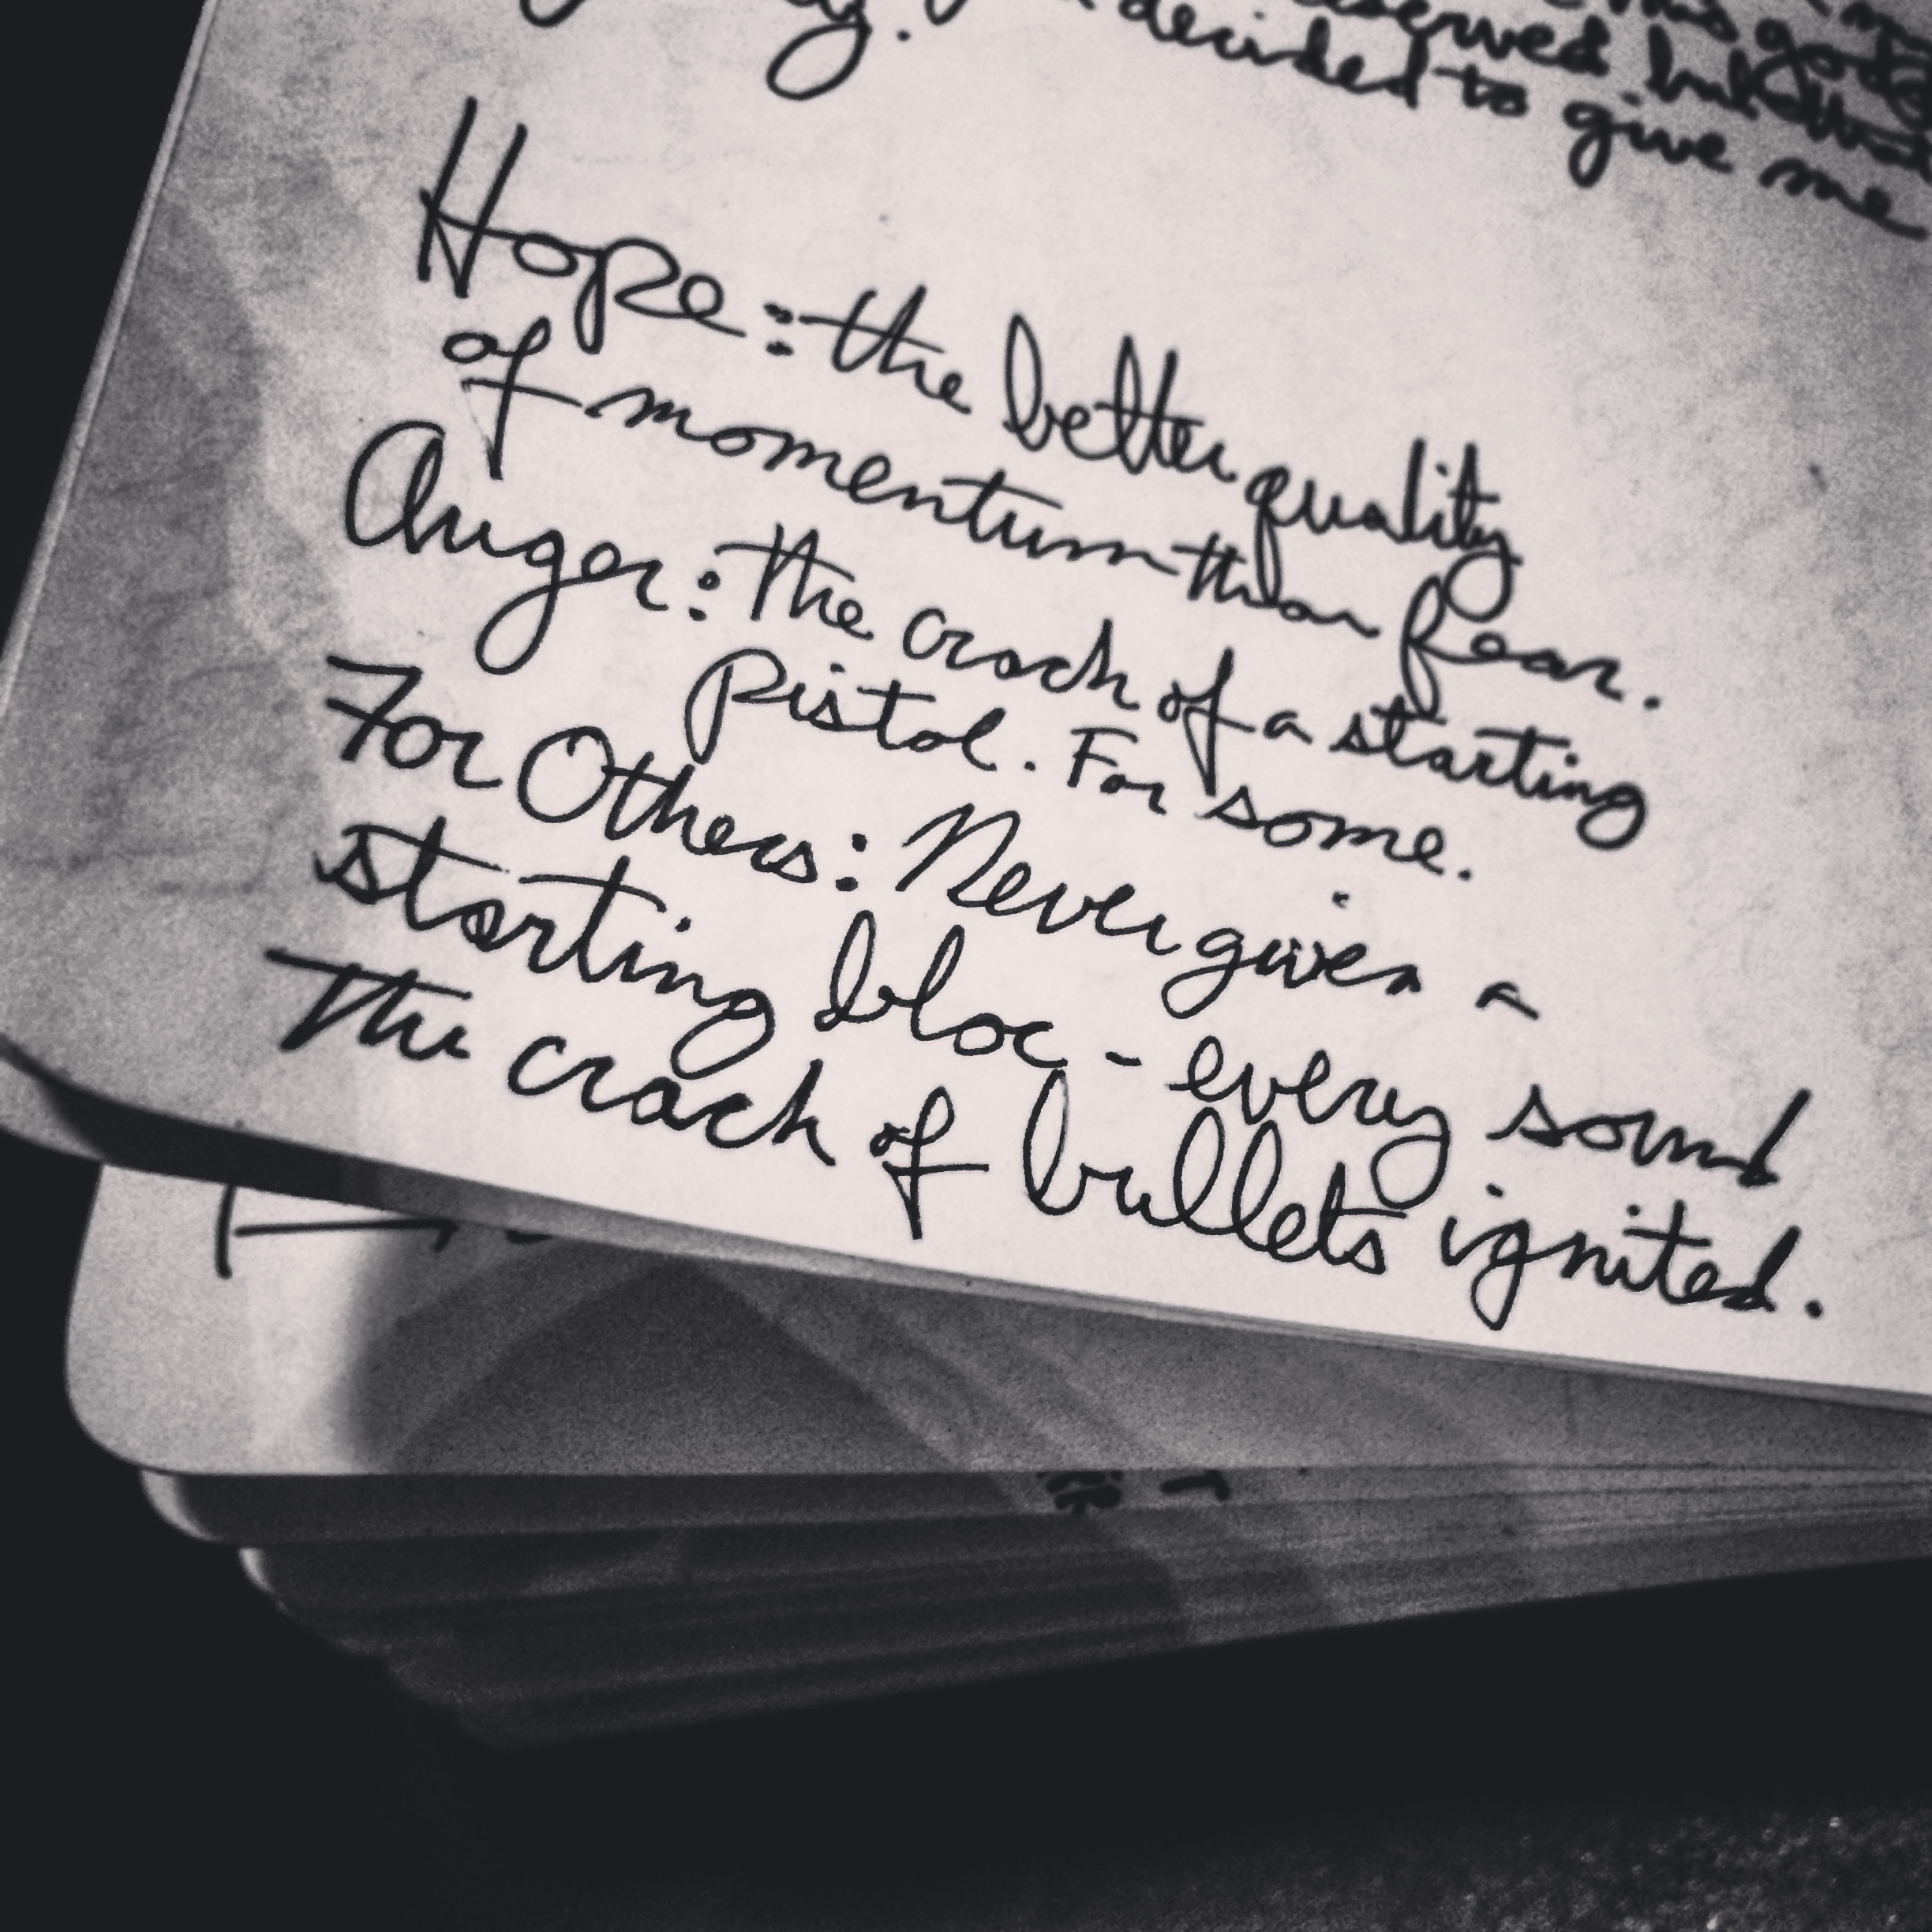 decided to give me
Hope: the better quality
of momentum than fear.
Anger: the crack of a starting
pistol. For some.
For Others: Never given a
starting bloc - every sound
the crack of bullets ignited.